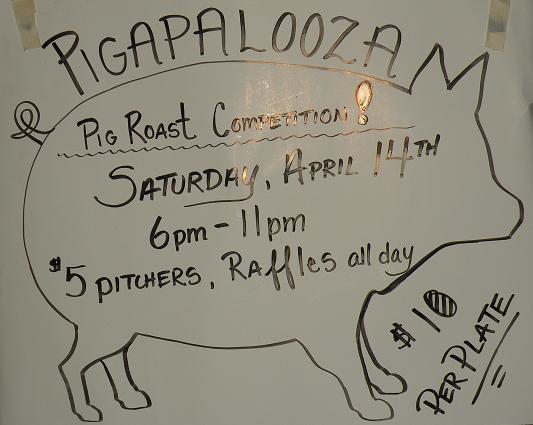 PIGAPALOOZA
PIG ROAST COMPETITION!
SATURDAY, APRIL 14TH
6pm - 11pm
$5 PITCHERS, RAffLES all day
$10
PER PLATE